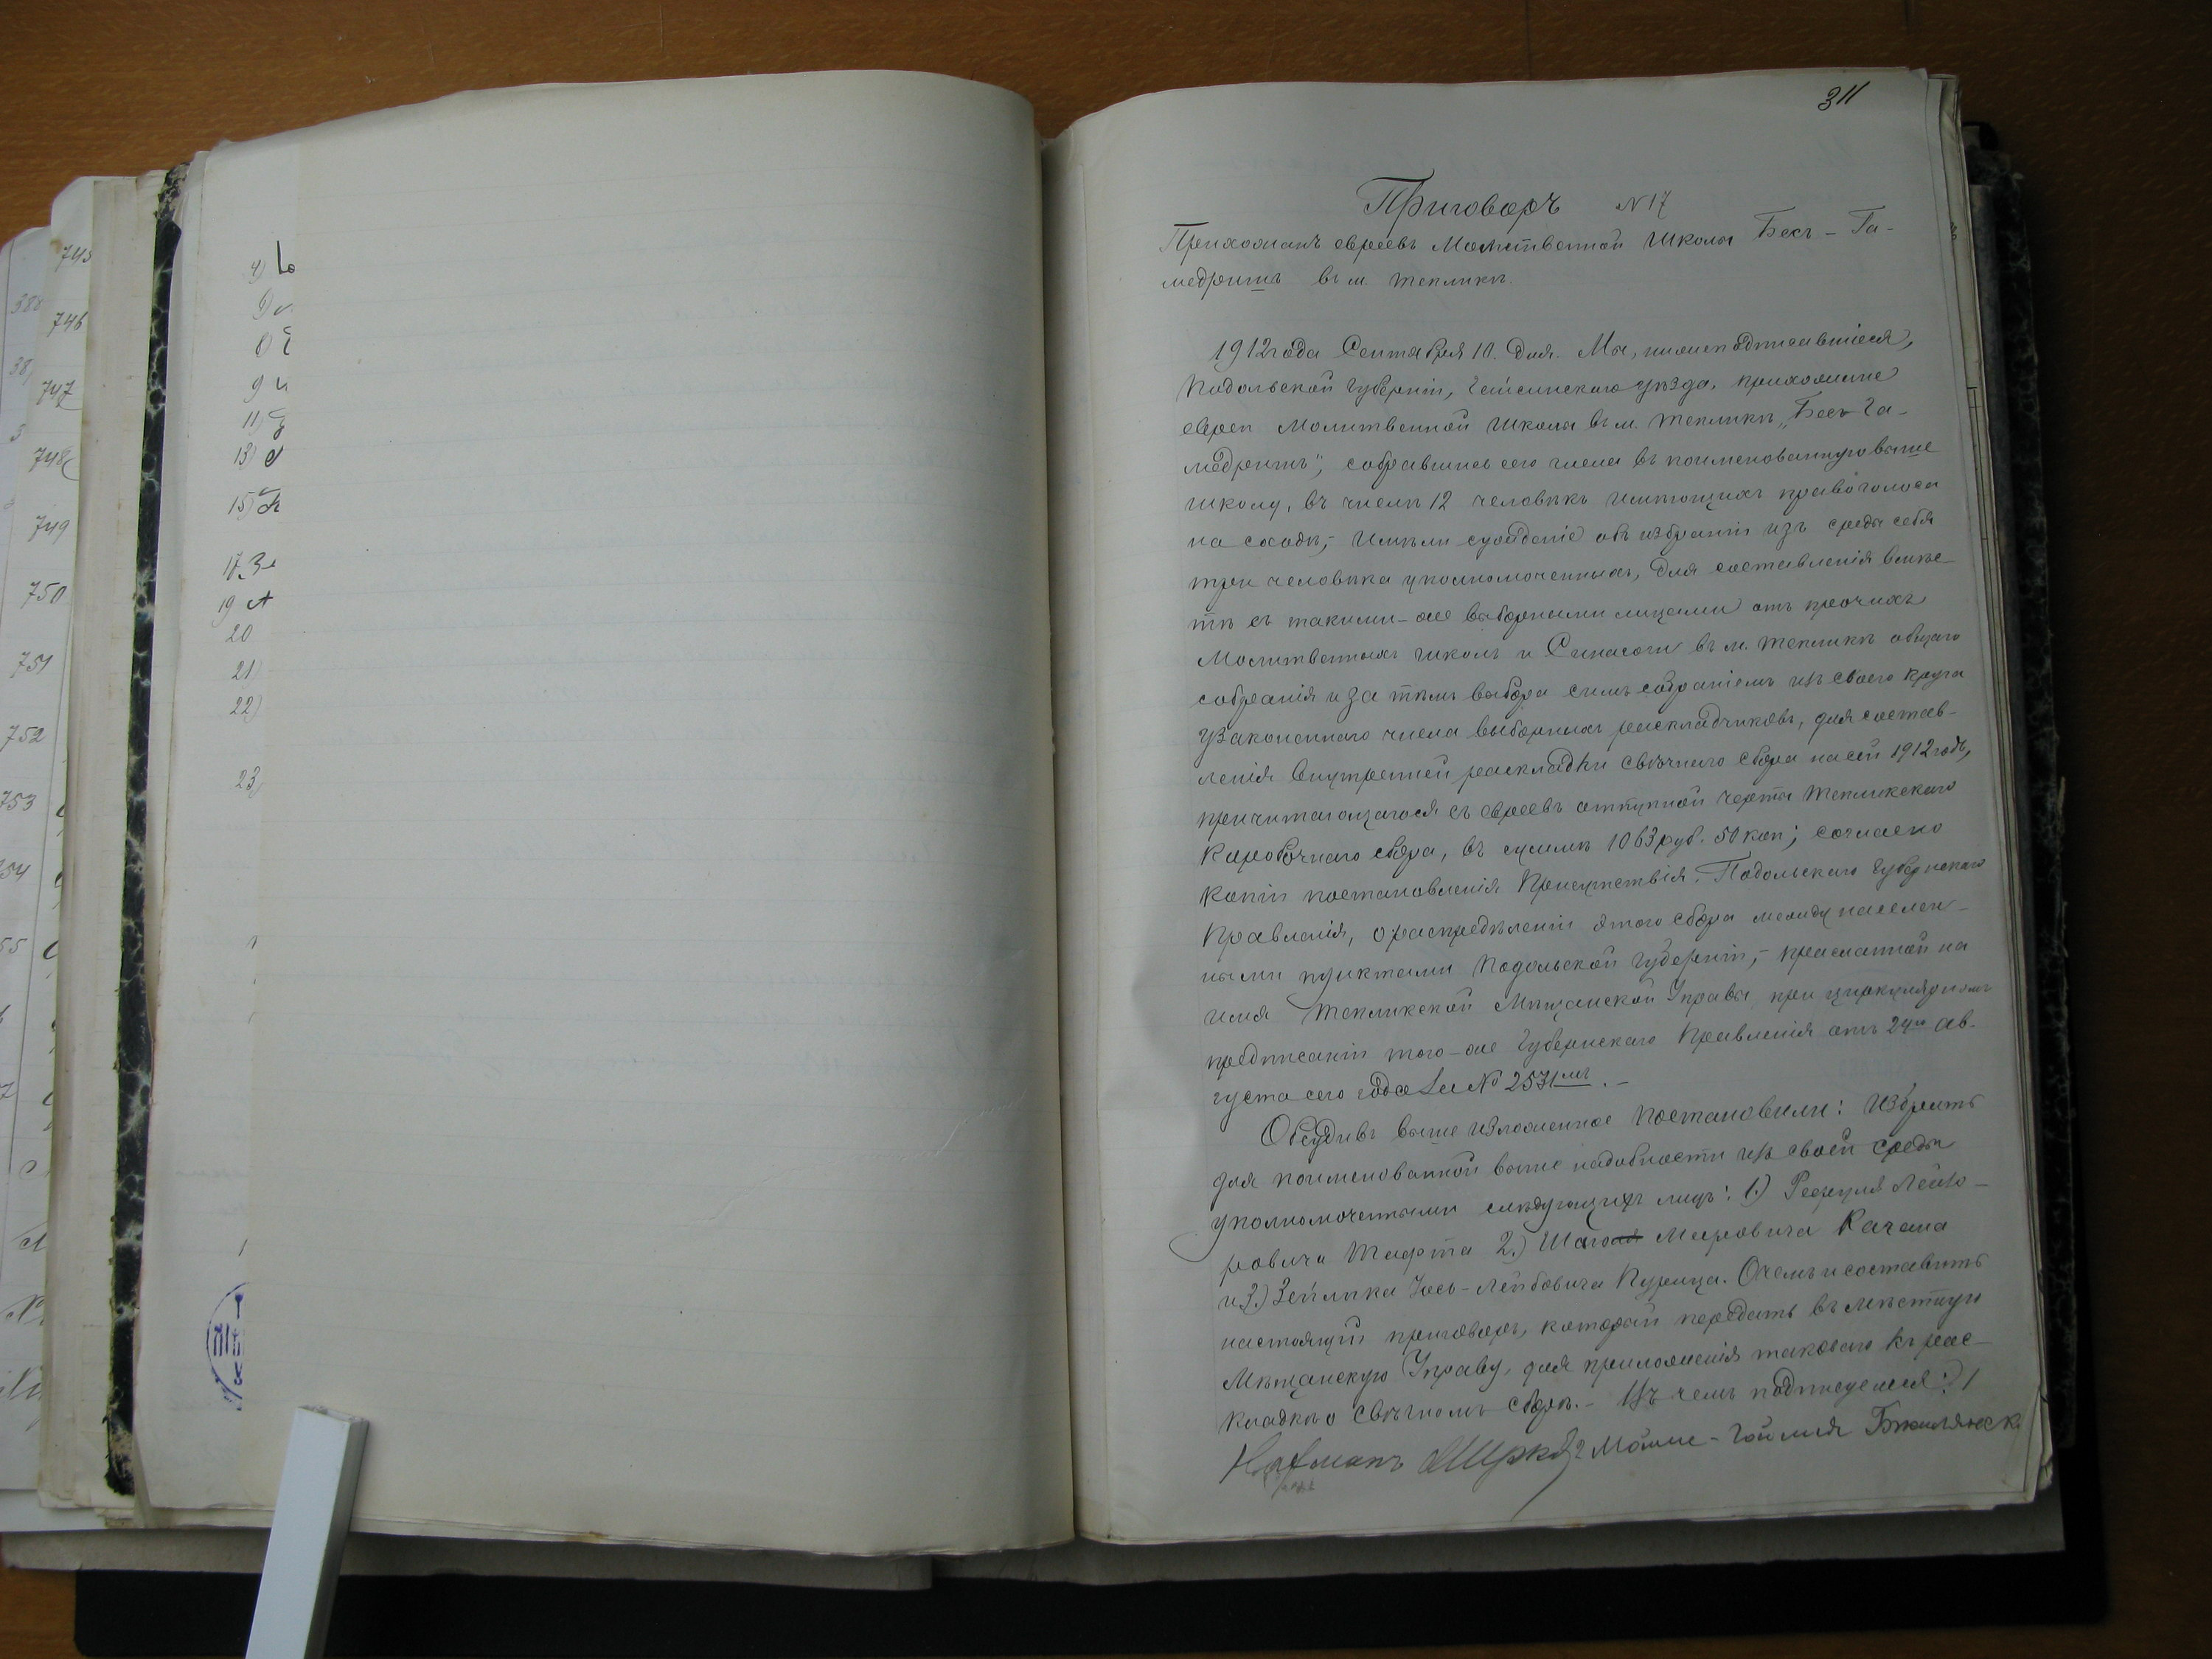 745
746
747
748
749
750
751
752
753
54
55
4)
8)
9
11)
13)
15)
17.
19
20
21)
22)
23)
311
Приговоръ №17
Прихожанъ евреевъ Молитвенной Школы Бесъ-Га-
медритъ въ м. Тепликѣ.
1912 года Сентября 10. дня. Мы, нижеподписавшіеся,
Подольской губерніи, Гайсинскаго уѣзда, прихожане
евреи Молитвенной Школы въ м. Тепликѣ „Бесъ-Га-
медритъ", собравшись сего числа въ поименованную выше
школу, въ числѣ 12 человѣкъ имѣющихъ право голоса
на сходѣ,- имѣли сужденіе объ избраніи изъ среды себя
три человѣка уполномоченныхъ, для составленія вмѣс-
тѣ съ такими-же выборными лицами отъ прочихъ
Молитвенныхъ школъ и Синагоги въ м. Тепликѣ общаго
собранія и за тѣмъ выбора симъ собраніемъ изъ своего круга
узаконеннаго числа выборныхъ раскладчиковъ, для состав-
ленія внутренней раскладки свѣчного сбора на сей 1912 годъ,
причитающагося съ евреевъ откупной черты Тепликскаго
Коробочнаго сбора, въ суммѣ 1063 руб. 50 коп; согласно
копіи постановленія Присутствія Подольскаго Губернскаго
Правленія, о распредѣленіи этого сбора между населен-
ными пунктами Подольской губерніи,- присланной на
имя Тепликской Мѣщанской Управы при циркулярномъ
предписаніи того-же Губернскаго Правленія отъ 24го ав-
густа сего года за № 2531мъ.-
Обсудивъ выше изложенное постановили: избрать
для поименованной выше надобности изъ своей среды
уполномоченными слѣдующихъ лицъ: 1.) Рефуля Лейзо-
ровича Тафта 2.) Шаю Мееровича Качана
и 3.) Зейлика Іось-Лейбовича Пурица. О чемъ и составить
настоящій приговоръ, который передать въ мѣстную
Мѣщанскую Управу, для приложенія таковаго къ рас-
кладкѣ о свѣчномъ сборѣ.- Въ чемъ подписуемся: 1
2 Мойше-Гойлия